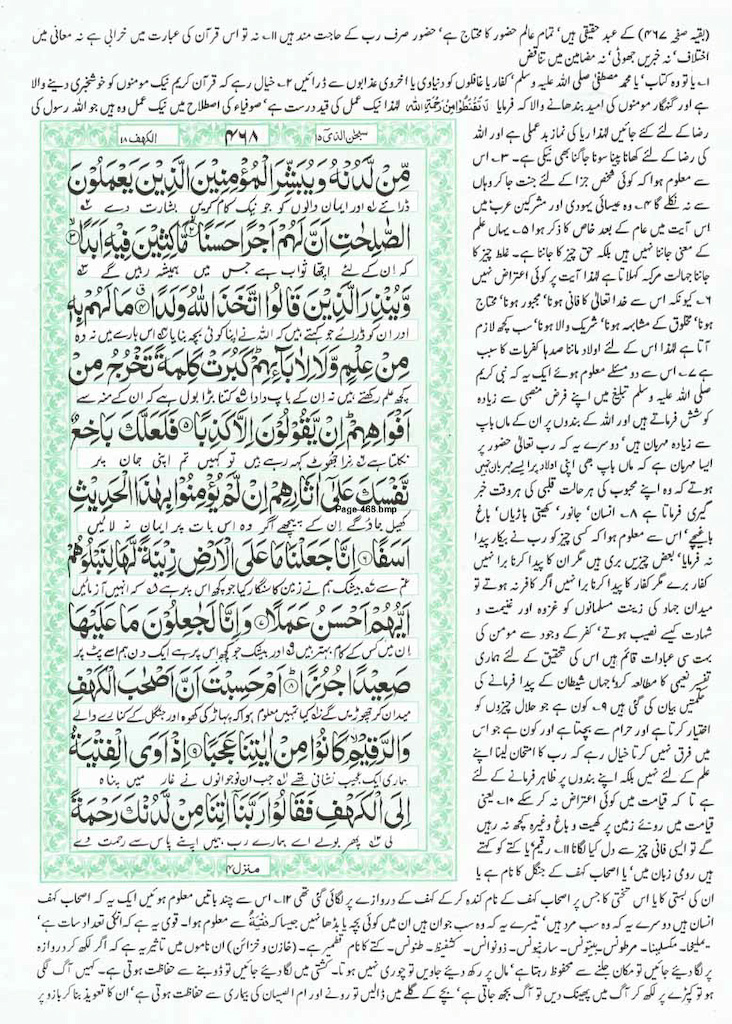 (بقیہ صفحہ ۴۶۷) کے عبد حقیقی ہیں' تمام عالم حضور کا محتاج ہے' حضور صرف رب کے حاجت مند ہیں ۱۱؎ نہ تو اس قرآن کی عبارت میں خرابی ہے نہ معانی میں
اختلاف' نہ خبریں جھوٹی' نہ مضامین میں تناقض
۱؎ یا تو وہ کتاب' یا محمد مصطفیٰ صلی اللہ علیہ وسلم' کفار یا غافلوں کو دنیاوی یا اخروی عذابوں سے ڈرائیں ۲؎ خیال رہے کہ قرآن کریم نیک مومنوں کو خوشخبری دینے والا
ہے اور گنہگار مومنوں کی امید بندھانے والا کہ فرمایا لَا تَقْنَطُوْا مِنْ رَّحْمَةِ اللّٰهِ لہٰذا نیک عمل کی قید درست ہے' صوفیاء کی اصطلاح میں نیک عمل وہ ہیں جو اللہ رسول کی
الکہف ۱۸
۴۶۸
سبحٰن الذی ۱۵
مِّنْ لَّدُنْهُ وَيُبَشِّرَ الْمُؤْمِنِيْنَ الَّذِيْنَ يَعْمَلُوْنَ
ڈرائے اور ایمان والوں کو جو نیک کام کریں بشارت دے
الصّٰلِحٰتِ اَنَّ لَهُمْ اَجْرًا حَسَنًا ۲ مَّاكِثِيْنَ فِيْهِ اَبَدًا ۳
کہ ان کے لئے اچھا ثواب ہے جس میں ہمیشہ رہیں گے
وَّيُنْذِرَ الَّذِيْنَ قَالُوا اتَّخَذَ اللّٰهُ وَلَدًا ۴ مَا لَهُمْ بِهٖ
اور ان کو ڈرائے جو کہتے ہیں کہ اللہ نے اپنا کوئی بچہ بنایا اس بارے میں نہ وہ
مِنْ عِلْمٍ وَّلَا لِاٰبَآئِهِمْ كَبُرَتْ كَلِمَةً تَخْرُجُ مِنْ
کچھ علم رکھتے ہیں نہ ان کے باپ دادا کتنا بڑا بول ہے کہ ان کے منہ سے
اَفْوَاهِهِمْ اِنْ يَّقُوْلُوْنَ اِلَّا كَذِبًا ۵ فَلَعَلَّكَ بَاخِعٌ
نکلتا ہے نرا جھوٹ کہہ رہے ہیں تو کہیں تم اپنی جان پر
نَّفْسَكَ عَلٰٓى اٰثَارِهِمْ اِنْ لَّمْ يُؤْمِنُوْا بِهٰذَا الْحَدِيْثِ
Page-468.bmp
کھیل جاؤ گے ان کے پیچھے اگر وہ اس بات پر ایمان نہ لائیں
اَسَفًا ۶ اِنَّا جَعَلْنَا مَا عَلَى الْاَرْضِ زِيْنَةً لَّهَا لِنَبْلُوَهُمْ
غم سے بیشک ہم نے زمین کا سنگار کیا جو کچھ اس پر ہے کہ انہیں آزمائیں
اَيُّهُمْ اَحْسَنُ عَمَلًا ۷ وَاِنَّا لَجٰعِلُوْنَ مَا عَلَيْهَا
ان میں کس کے کام بہتر ہیں اور بیشک جو کچھ اس پر ہے ایک دن ہم اسے پٹ پر
صَعِيْدًا جُرُزًا ۸ اَمْ حَسِبْتَ اَنَّ اَصْحٰبَ الْكَهْفِ
میدان کر چھوڑیں گے کیا تمہیں معلوم ہوا کہ پہاڑ کی کھوہ اور جنگل کے کنارے والے
وَالرَّقِيْمِ كَانُوْا مِنْ اٰيٰتِنَا عَجَبًا ۹ اِذْ اَوَى الْفِتْيَةُ
ہماری ایک عجیب نشانی تھے جب ان نوجوانوں نے غار میں پناہ
اِلَى الْكَهْفِ فَقَالُوْا رَبَّنَآ اٰتِنَا مِنْ لَّدُنْكَ رَحْمَةً
لی پھر بولے اے ہمارے رب ہمیں اپنے پاس سے رحمت دے
منزل ۴
رضا کے لئے کئے جائیں لہٰذا ریا کی نماز بد عملی ہے اور اللہ
کی رضا کے لئے کھانا پینا سونا جاگنا بھی نیکی ہے۔ ۳؎ اس
سے معلوم ہوا کہ کوئی شخص جزا کے لئے جنت جا کر وہاں
سے نہ نکلے گا ۴؎ وہ عیسائی یہودی اور مشرکین عرب میں
اس آیت میں عام کے بعد خاص کا ذکر ہوا ۵؎ یہاں علم
کے معنی جاننا نہیں ہیں بلکہ حق چیز کا جاننا ہے۔ غلط چیز کا
جاننا جہالت مرکبہ کہلاتا ہے لہٰذا آیت پر کوئی اعتراض نہیں
۶؎ کیونکہ اس سے خدا تعالیٰ کا فانی ہونا' مجبور ہونا' محتاج
ہونا' مخلوق کے مشابہہ ہونا' شریک والا ہونا' سب کچھ لازم
آتا ہے لہٰذا اس کے لئے اولاد ماننا صدہا کفریات کا سبب
ہے ۷؎ اس سے دو مسئلے معلوم ہوئے ایک یہ کہ نبی کریم
صلی اللہ علیہ وسلم تبلیغ میں اپنے فرض منصبی سے زیادہ
کوشش فرماتے ہیں اور اللہ کے بندوں پر ان کے ماں باپ
سے زیادہ مہربان ہیں' دوسرے یہ کہ رب تعالیٰ حضور پر
ایسا مہربان ہے کہ ماں باپ بھی اپنی اولاد پر ایسے مہربان نہیں
ہوتے کہ وہ اپنے محبوب کی ہر حالت قلبی کی ہر وقت خبر
گیری فرماتا ہے ۸؎ انسان' جانور' کھیتی باڑیاں' باغ
باغیچے' اس سے معلوم ہوا کہ کسی چیز کو رب نے بیکار پیدا
نہ فرمایا' بعض چیزیں بری ہیں مگر ان کا پیدا کرنا برا نہیں
کفار برے مگر کفار کا پیدا کرنا برا نہیں اگر کافر نہ ہوتے تو
میدان جہاد کی زینت مسلمانوں کو غزوہ اور غنیمت و
شہادت کیسے نصیب ہوتے' کفر کے وجود سے مومن کی
بہت سی عبادات قائم ہیں اس کی تحقیق کے لئے ہماری
تفسیر نعیمی کا مطالعہ کرو' جہاں شیطان کے پیدا فرمانے کی
حکمتیں بیان کی گئی ہیں ۹؎ کون ہے جو حلال چیزوں کو
اختیار کرتا ہے اور حرام سے بچتا ہے اور کون ہے جو اس
میں فرق نہیں کرتا خیال رہے کہ رب کا امتحان لینا اپنے
علم کے لئے نہیں بلکہ اپنے بندوں پر ظاہر فرمانے کے لئے
ہے تا کہ قیامت میں کوئی اعتراض نہ کر سکے ۱۰؎ یعنی
قیامت میں روئے زمین پر کھیت و باغ وغیرہ کچھ نہ رہیں
گے تو ایسی فانی چیز سے دل کیا لگانا ۱۱؎ رقیم' یا کتے کو کہتے
ہیں رومی زبان میں' یا اصحاب کہف کے جنگل کا نام ہے یا
ان کی بستی کا یا اس تختی کا جس پر اصحاب کہف کے نام کندہ کر کے کہف کے دروازے پر لگائی گئی تھی ۱۲؎ اس سے چند باتیں معلوم ہوئیں ایک یہ کہ اصحاب کہف
انسان ہیں دوسرے یہ کہ وہ سب مرد ہیں' تیسرے یہ کہ وہ سب جوان ہیں ان میں کوئی بچہ یا بڈھا نہیں جیسا کہ فِتْيَةٌ سے معلوم ہوا۔ قوی یہ ہے کہ انکی تعداد سات ہے'
۔ملیخا۔ مکسلینا۔ مرطونس۔ بینونس۔ سارینونس۔ ذونوانس۔ کشفیط۔ طنونس۔ کتے کا نام قطمیر ہے۔ (خازن و خزائن) ان ناموں میں تاثیر یہ ہے کہ اگر لکھ کر دروازہ
پر لگا دیئے جائیں تو مکان جلنے سے محفوظ رہتا ہے' مال پر رکھ دیئے جاویں تو چوری نہیں ہوتا۔ کشتی میں لگا دیئے جائیں تو ڈوبنے سے حفاظت ہوتی ہے۔ کہیں آگ لگی
ہو تو کپڑے پر لکھ کر آگ میں پھینک دیں تو آگ بجھ جاتی ہے' بچے کے گلے میں ڈالیں تو رونے اور ام الصبیان کی بیماری سے حفاظت ہوتی ہے' ان کا تعویذ بنا کر بازو پر